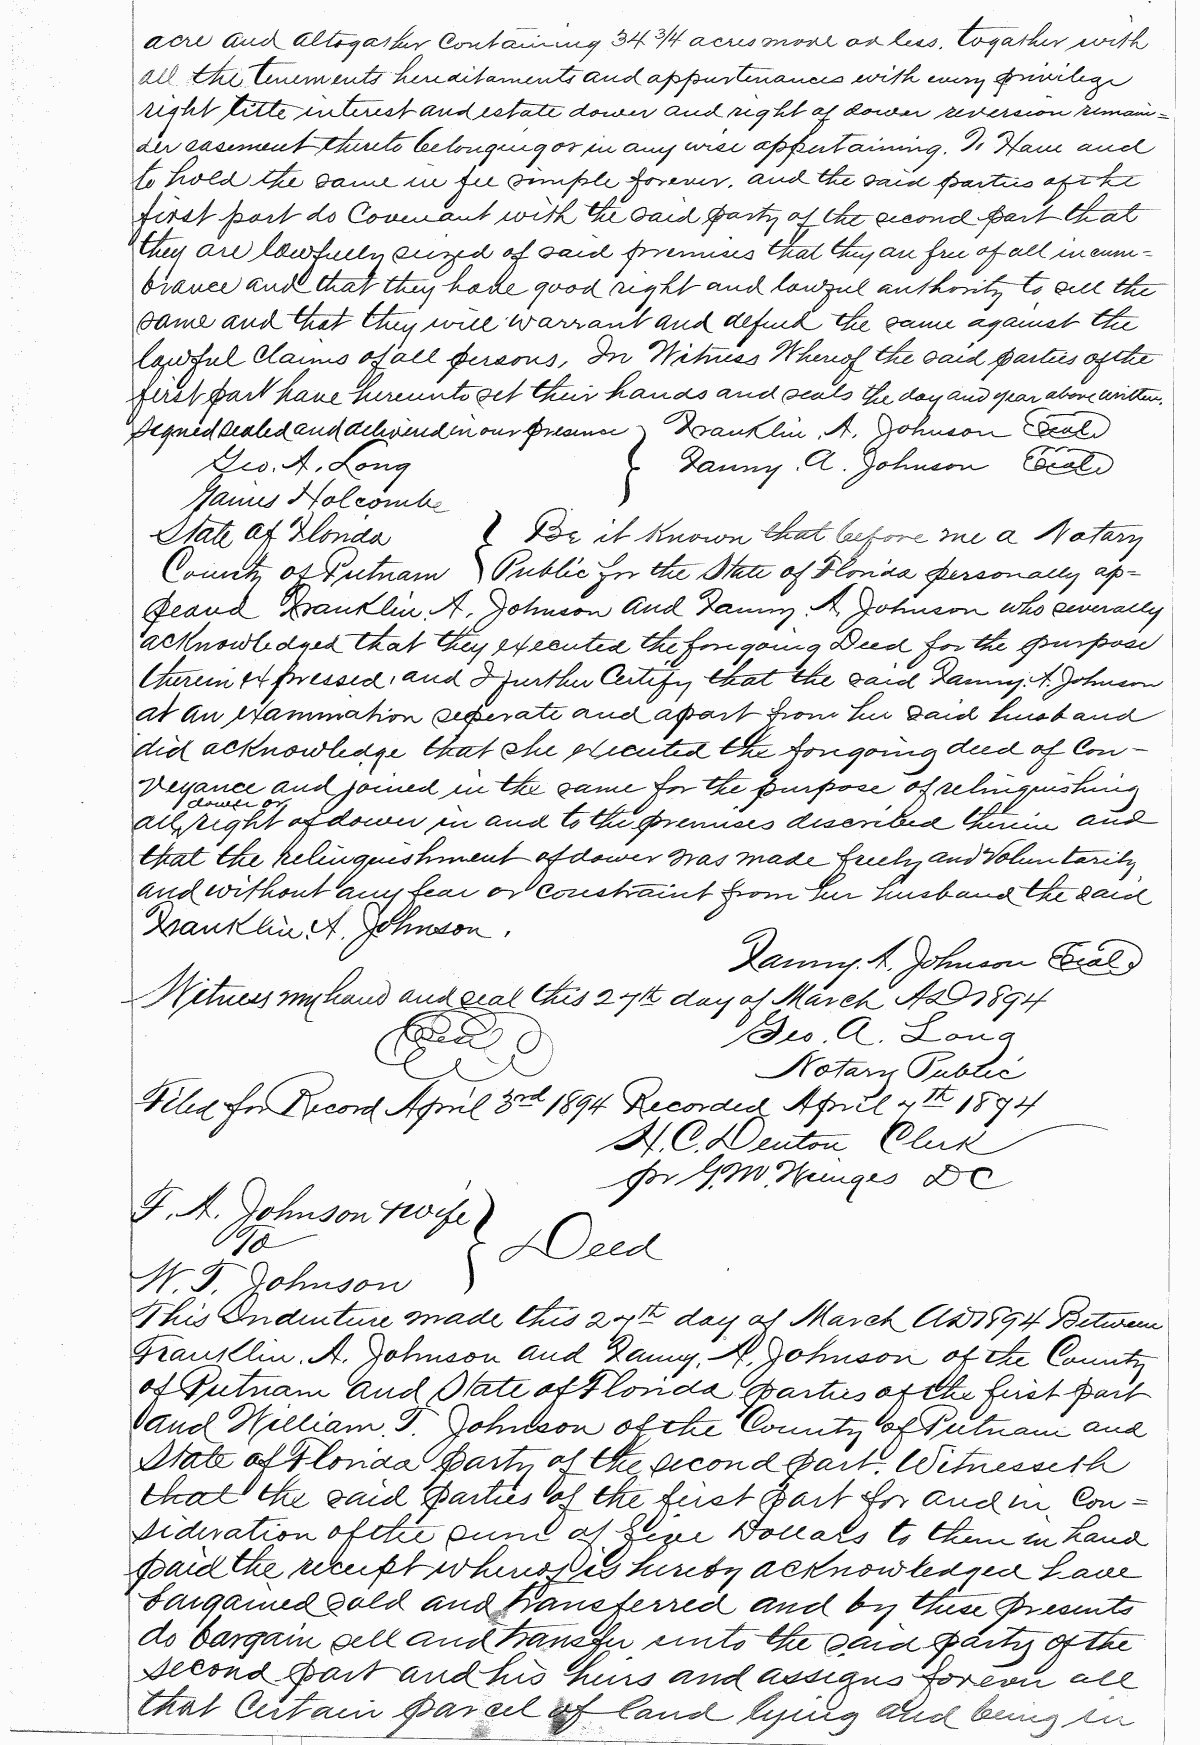 acre and altogather Containing 34 3/4 acres more or less. togather with
all the tenements hereditaments and appurtenances with every privilege
right title interest and estate dower and right of dower reversion remain=
der easement thereto belonging or in any wise appertaining. To Have and
to hold the same in fee simple forever. and the said parties of the
first part do Covenant with the said party of the second part that
they are lawfully seized of said premises that they are free of all incum=
brance and that they have good right and lawful authority to sell the
same and that they will warrant and defend the same against the
lawful Claims of all persons. In Witness Whereof the said parties of the
first part have hereunto set their hands and seals the day and year above written.
Signed sealed and delivered in our presence } Franklin. A. Johnson (Seal)
Geo. A. Long } Fanny. A. Johnson (Seal)
James Holcombe
State of Florida } Be it known that before me a Notary
County of Putnam } Public for the State of Florida personally ap=
peared Franklin. A. Johnson and Fanny. A. Johnson who severally
acknowledged that they executed the foregoing Deed for the purpose
therein expressed. and I further Certify that the said Fanny. A. Johnson
at an examination seperate and apart from her said husband
did acknowledge that she executed the foregoing deed of Con-
veyance and joined in the same for the purpose of relinquishing
dower or
all right of dower in and to the premises discribed therein and
that the relinquishment of dower was made freely and Voluntarily
and without any fear or constraint from her husband the said
Franklin. A. Johnson.
Fanny. A. Johnson (Seal)
Witness my hand and seal this 27th day of March AD 1894
(Seal) Geo. A. Long
Notary Public
Filed for Record April 3rd 1894 Recorded April 7th 1894
H. C. Denton Clerk
pr G. M. DC
F. A. Johnson & wife }
To } Deed
W. T. Johnson }
This Indenture made this 27th day of March AD 1894 Between
Franklin. A. Johnson and Fanny. A. Johnson of the County
of Putnam and State of Florida parties of the first part
and William. T. Johnson of the County of Putnam and
State of Florida party of the second part. Witnesseth
that the said parties of the first part for and in Con=
sideration of the sum of five Dollars to them in hand
paid the receipt whereof is hereby acknowledged have
bargained sold and transferred and by these presents
do bargain sell and transfer unto the said party of the
second part and his heirs and assigns forever all
that Certain parcel of land lying and being in